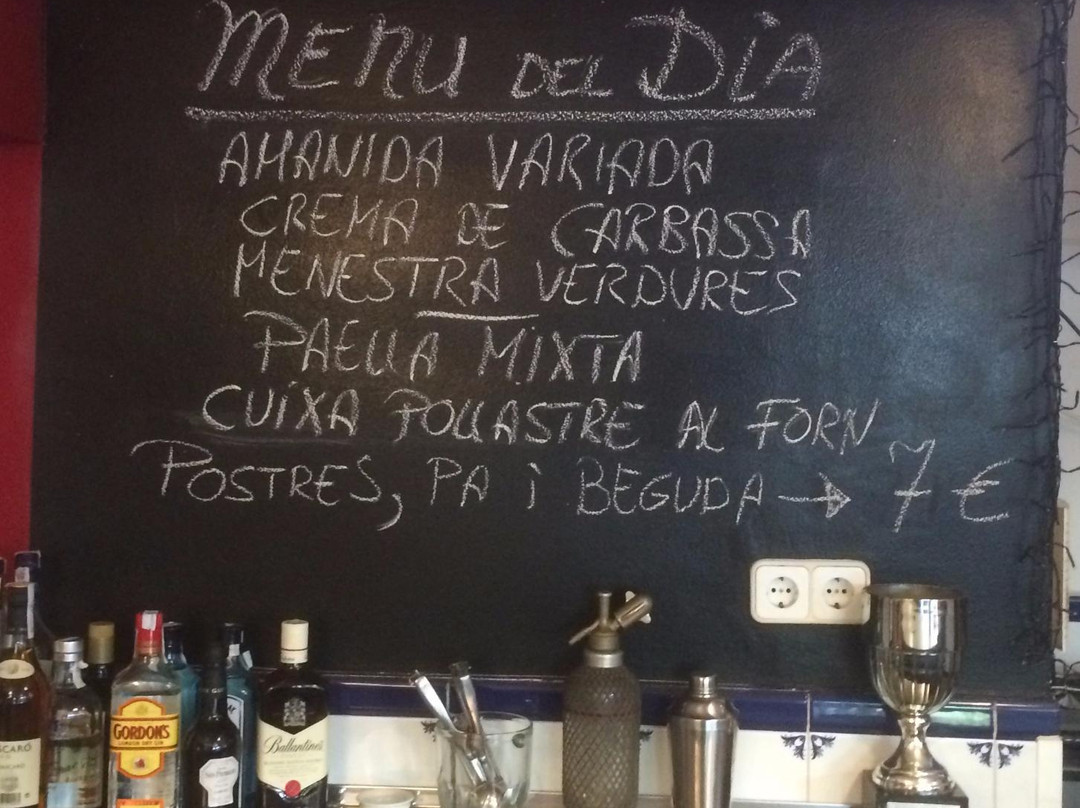 MENU DEL DIA
AMANIDA VARIADA
CREMA DE CARBASSA
MENESTRA VERDURES
PAELLA MIXTA
CUIXA POLLASTRE AL FORN
POSTRES, PA i BEGUDA → 7 €
GORDON'S
LONDON DRY GIN
Ballantine's